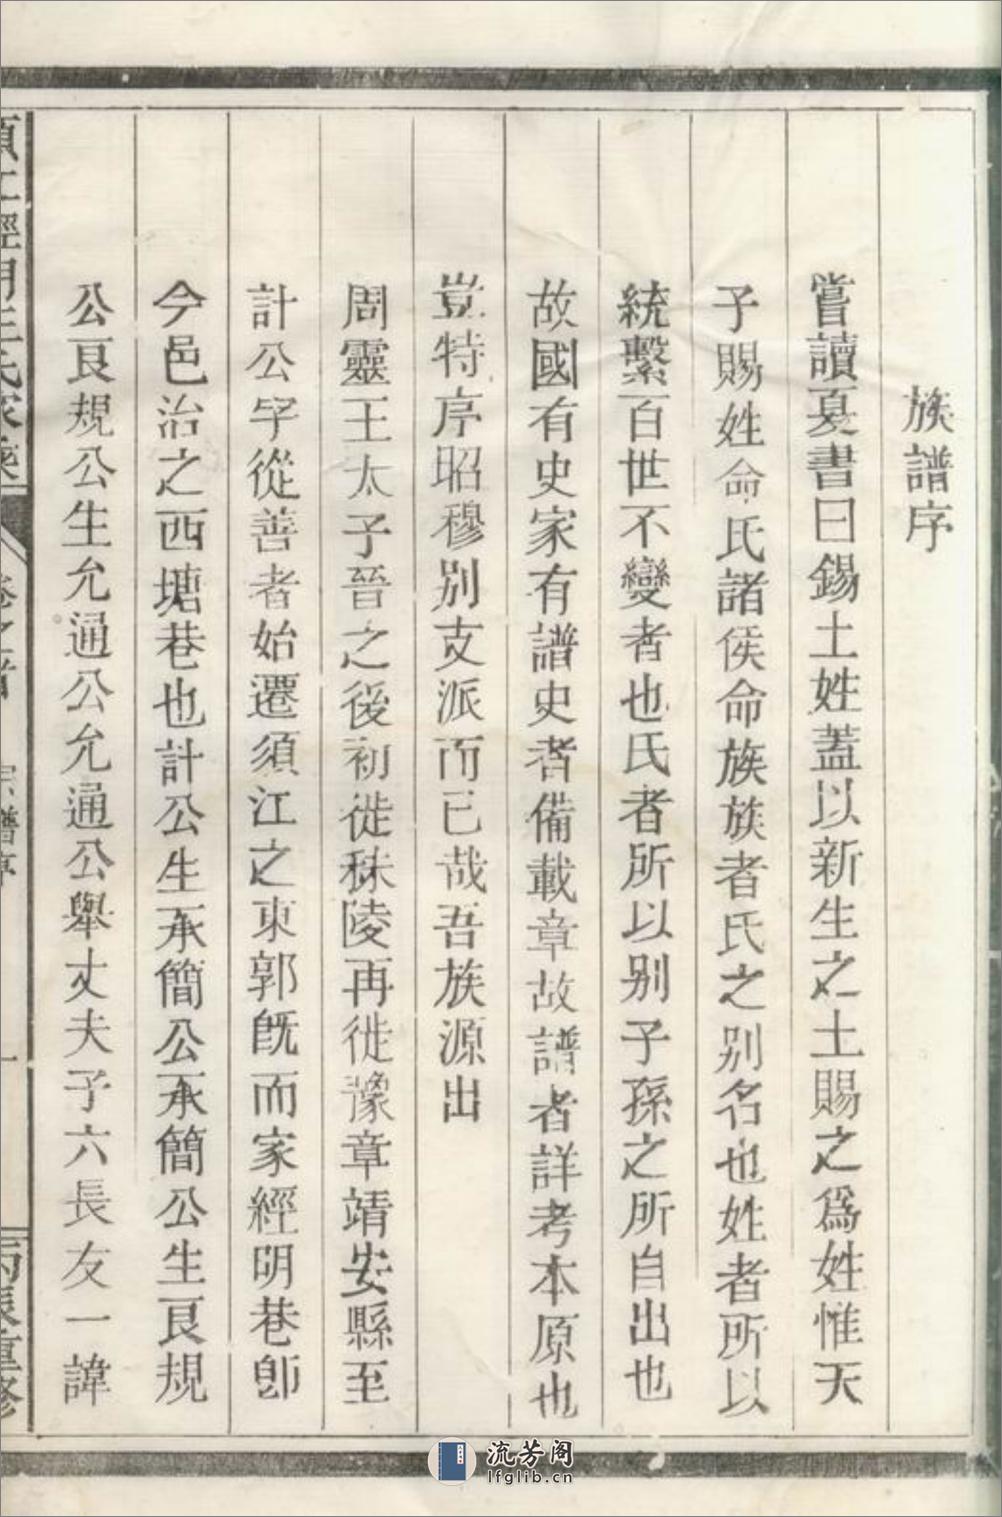 族譜序
嘗讀夏書曰錫土姓蓋以新生之土賜之爲姓惟天
子賜姓命氏諸侯命族族者氏之别名也姓者所以
統繫百世不變者也氏者所以别子孫之所自出也
故國有史家有譜史者備載章故譜者詳考本原也
豈特序昭穆别支派而已哉吾族源出
周靈王太子晉之後初徙秣陵再徙豫章靖安縣至
計公字從善者始遷須江之東郭旣而家經明巷卽
今邑治之西塘巷也計公生承簡公承簡公生良規
公良規公生允通公允通公舉丈夫子六長友一諱
須江經明王氏家乘
卷之首
宗譜序
一
丙辰重修
流芳阁
lfglib.cn